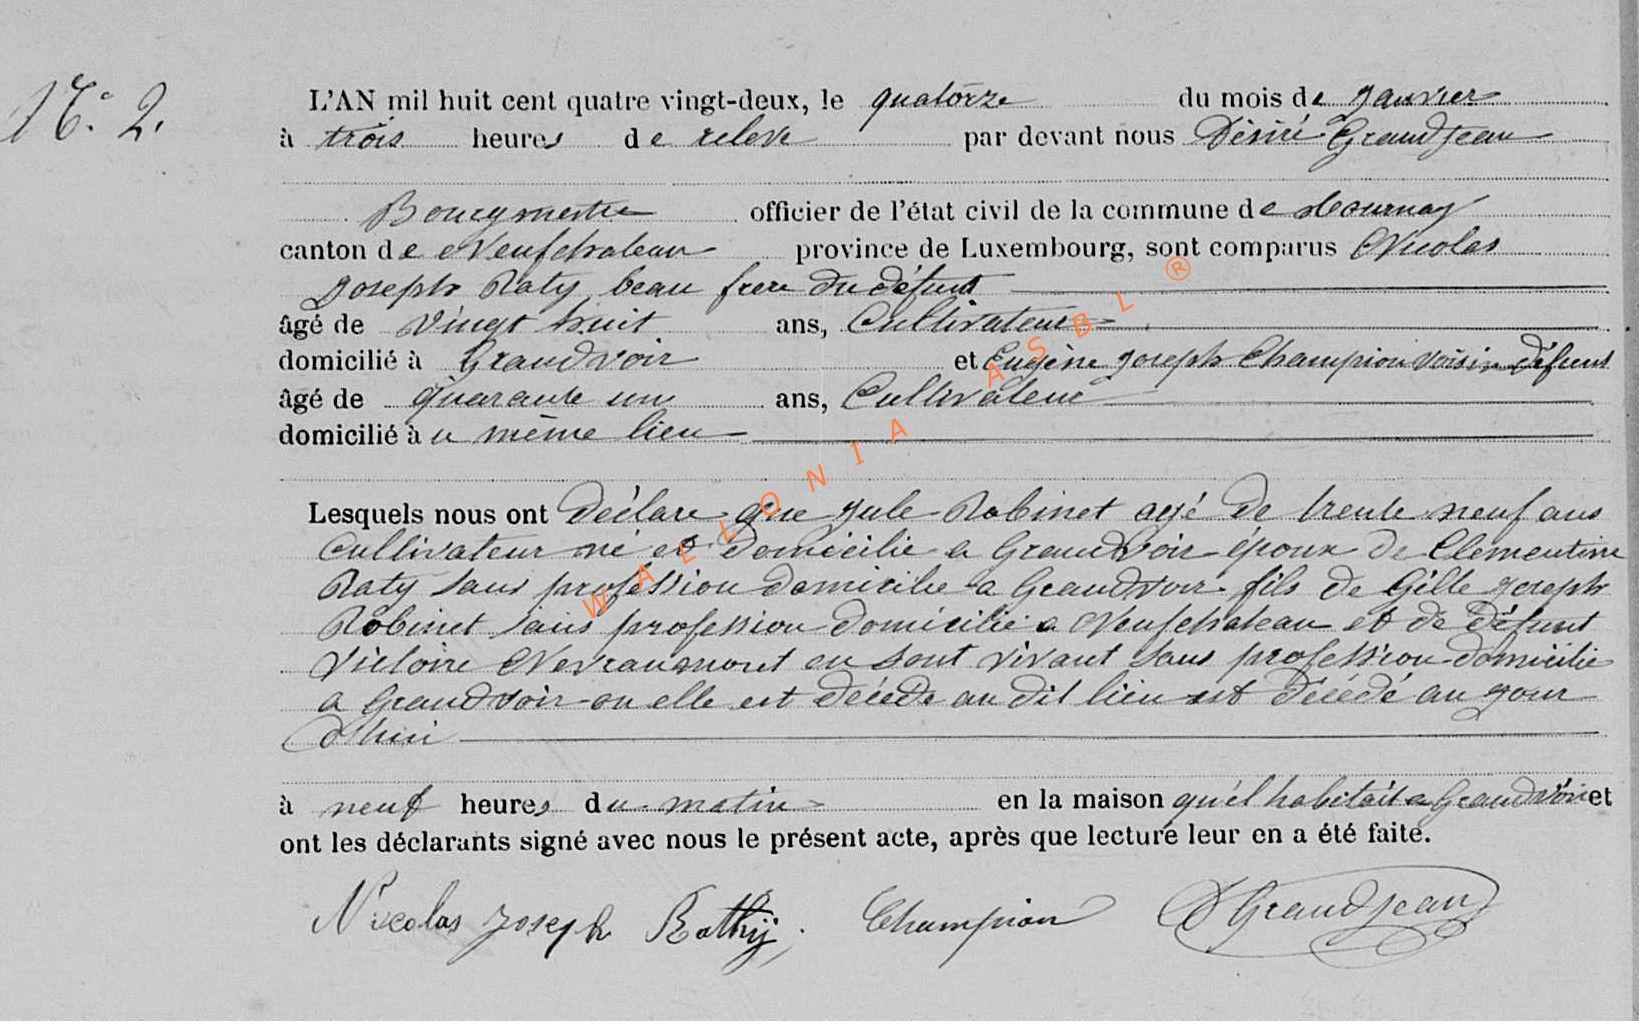 N° 2.
L'AN mil huit cent quatre vingt-deux, le quatorze du mois de Janvier
à trois heures de relevé par devant nous Désiré Grandjean
Bourgmestre officier de l'état civil de la commune de Tournay
canton de Neufchateau province de Luxembourg, sont comparus Nicolas
Joseph Raty beau frere du défunt
âgé de vingt huit ans, Cultivateur
domicilié à Grandvoir et Eugène Joseph Champion voisin défunt
âgé de quarante un ans, Cultivateur
domicilié à u même lieu
Lesquels nous ont déclare que Jule Robinet agé de trente neuf ans
Cultivateur né et domicilié a Grandvoir époux de Clementine
Raty sans profession domicilie a Grandvoir fils de Gille Joseph
Robinet sans profession domicilié a Neufchateau et de défunt
Victoire Nevraumont en sont vivant sans profession domicilie
a Grandvoir ou elle est décéde au dit lieu est décédé au jour
dhui
à neuf heures du matin en la maison qu'el habitait a Grandvoir et
ont les déclarants signé avec nous le présent acte, après que lecture leur en a été faite.
Nicolas Joseph Rathij, Champion DGrandjean
WALLONIA ASBL ®